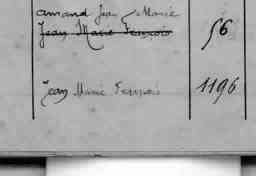 amand Jean Marie
Jean Marie François 56
Jean Marie François 1196